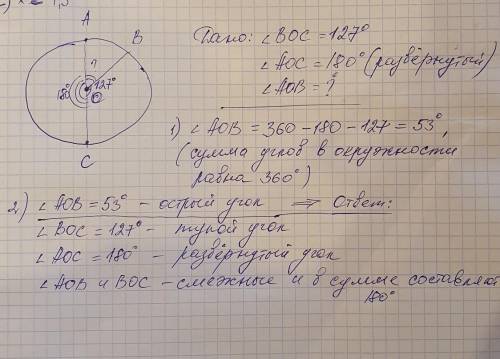 A
B
?
180°
127°
O
C
Дано: ∠BOC = 127°
∠AOC = 180° (развёрнутый)
∠AOB = ?
1) ∠AOB = 360 - 180 - 127 = 53°,
(сумма углов в окружности
равна 360°)
2) ∠AOB = 53° - острый угол ⇒ Ответ:
∠BOC = 127° - тупой угол
∠AOC = 180° - развёрнутый угол
∠AOB и BOC - смежные и в сумме составляют
180°